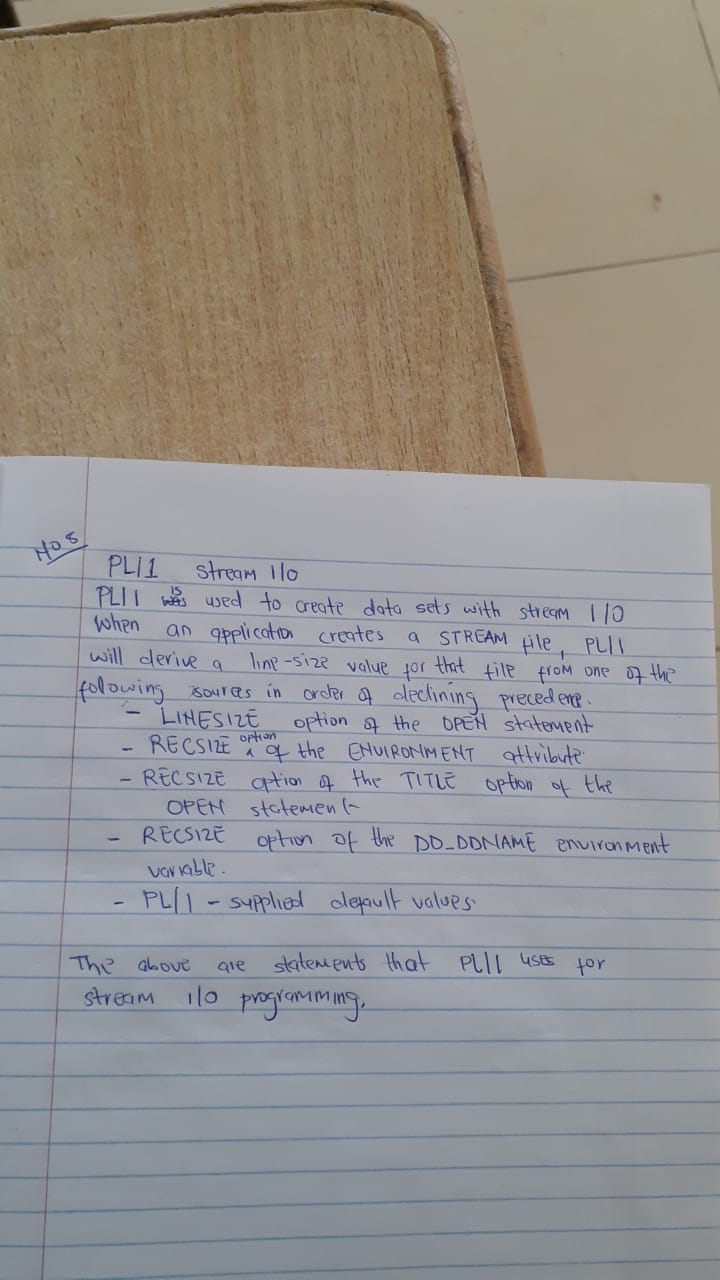 NO 8
PL/1 stream I/O
PL/1 is used to create data sets with stream I/O
When an application creates a STREAM file, PL/1
will derive a line-size value for that file from one of the
folowing sources in order of declining precedence.
- LINESIZE option of the OPEN statement
- RECSIZE option of the ENVIRONMENT attribute
- RECSIZE option of the TITLE option of the
OPEN statement
- RECSIZE option of the DD_DDNAME environment
variable.
- PL/1 - supplied default values.
The above are statements that PL/1 uses for
stream I/O programming.